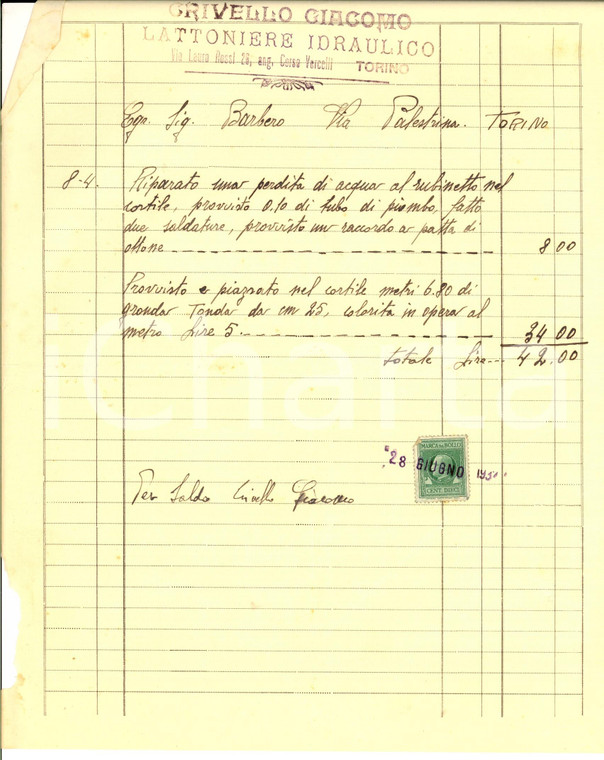 CRIVELLO GIACOMO
LATTONIERE IDRAULICO
Via Laura Rossi 26, ang. Corso Vercelli TORINO
Egr. Sig. Barbero Via Palestrina. TORINO
8-4. Riparato una perdita di acqua al rubinetto nel
cortile, provvisto 0.10 di tubo di piombo, fatto
due saldature, provvisto un raccordo a patta di
ottone 8 00
Provvisto e piazzato nel cortile metri 6.80 di
gronda Tonda da cm 25, colorita in opera al
metro Lire 5. 34 00
Totale Lire 42.00
MARCA DA BOLLO
28 GIUGNO
CENT. DIECI
Per Saldo Crivello Giacomo